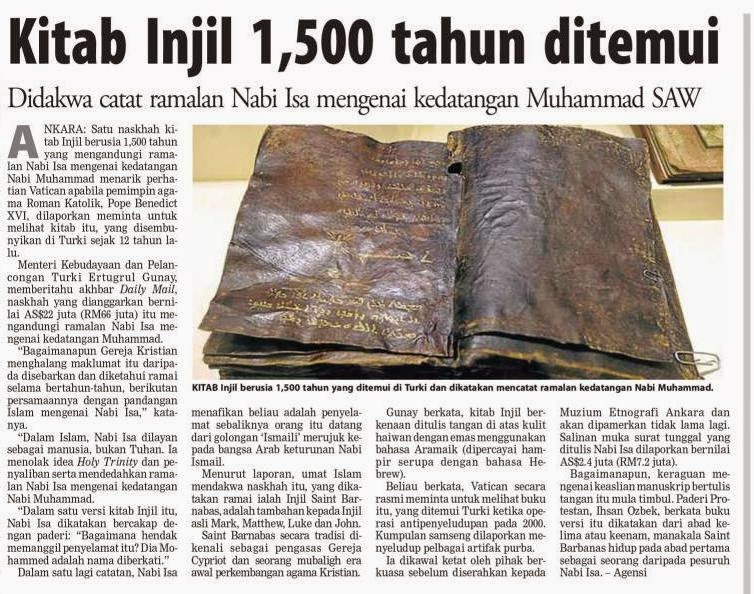 Kitab Injil 1,500 tahun ditemui
Didakwa catat ramalan Nabi Isa mengenai kedatangan Muhammad SAW
ANKARA: Satu naskhah ki-
tab Injil berusia 1,500 tahun
yang mengandungi rama-
lan Nabi Isa mengenai kedatangan
Nabi Muhammad menarik perha-
tian Vatican apabila pemimpin aga-
ma Roman Katolik, Pope Benedict
XVI, dilaporkan meminta untuk
melihat kitab itu, yang disembu-
nyikan di Turki sejak 12 tahun la-
lu.
Menteri Kebudayaan dan Pelan-
congan Turki Ertugrul Gunay,
memberitahu akhbar Daily Mail,
naskhah yang dianggarkan berni-
lai AS$22 juta (RM66 juta) itu me-
ngandungi ramalan Nabi Isa me-
ngenai kedatangan Muhammad.
“Bagaimanapun Gereja Kristian
menghalang maklumat itu daripa-
da disebarkan dan diketahui ramai
selama bertahun-tahun, berikutan
persamaannya dengan pandangan
Islam mengenai Nabi Isa,” kata-
nya.
“Dalam Islam, Nabi Isa dilayan
sebagai manusia, bukan Tuhan. Ia
menolak idea Holy Trinity dan pe-
nyaliban serta mendedahkan rama-
lan Nabi Isa mengenai kedatangan
Nabi Muhammad.
“Dalam satu versi kitab Injil itu,
Nabi Isa dikatakan bercakap de-
ngan paderi: “Bagaimana hendak
memanggil penyelamat itu? Dia Mo-
hammed adalah nama diberkati.”
Dalam satu lagi catatan, Nabi Isa
KITAB Injil berusia 1,500 tahun yang ditemui di Turki dan dikatakan mencatat ramalan kedatangan Nabi Muhammad.
menafikan beliau adalah penyela-
mat sebaliknya orang itu datang
dari golongan ‘Ismaili’ merujuk ke-
pada bangsa Arab keturunan Nabi
Ismail.
Menurut laporan, umat Islam
mendakwa naskhah itu, yang dika-
takan ramai ialah Injil Saint Bar-
nabas, adalah tambahan kepada Injil
asli Mark, Matthew, Luke dan John.
Saint Barnabas secara tradisi di-
kenali sebagai pengasas Gereja
Cypriot dan seorang mubaligh era
awal perkembangan agama Kristian.
Gunay berkata, kitab Injil ber-
kenaan ditulis tangan di atas kulit
haiwan dengan emas menggunakan
bahasa Aramaik (dipercayai ham-
pir serupa dengan bahasa He-
brew).
Beliau berkata, Vatican secara
rasmi meminta untuk melihat buku
itu, yang ditemui Turki ketika ope-
rasi antipenyeludupan pada 2000.
Kumpulan samseng dilaporkan me-
nyeludup pelbagai artifak purba.
Ia dikawal ketat oleh pihak ber-
kuasa sebelum diserahkan kepada
Muzium Etnografi Ankara dan
akan dipamerkan tidak lama lagi.
Salinan muka surat tunggal yang
ditulis Nabi Isa dilaporkan bernilai
AS$2.4 juta (RM7.2 juta).
Bagaimanapun, keraguan me-
ngenai keaslian manuskrip bertulis
tangan itu mula timbul. Paderi Pro-
testan, Ihsan Ozbek, berkata buku
versi itu dikatakan dari abad ke-
lima atau keenam, manakala Saint
Barbanas hidup pada abad pertama
sebagai seorang daripada pesuruh
Nabi Isa. – Agensi